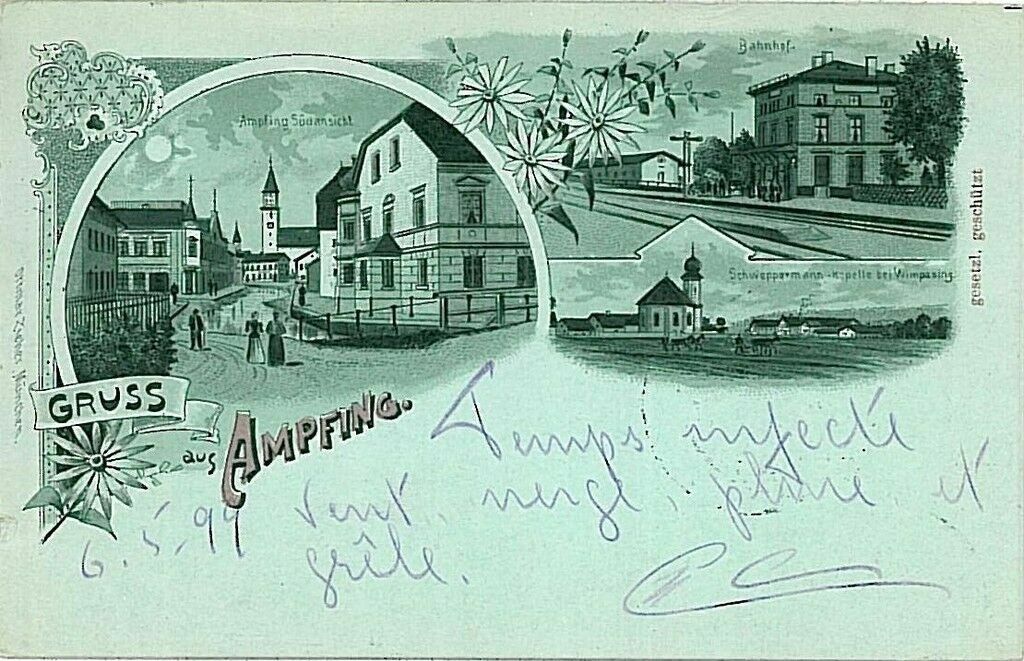 Bahnhof.
Ampfing Südansicht
gesetzl. geschützt
Schweppermann-Kapelle bei Wimpasing
GRUSS
aus AMPFING.
Temps infecte
6.5.99 Vent, neige, pluie, et
grêle.